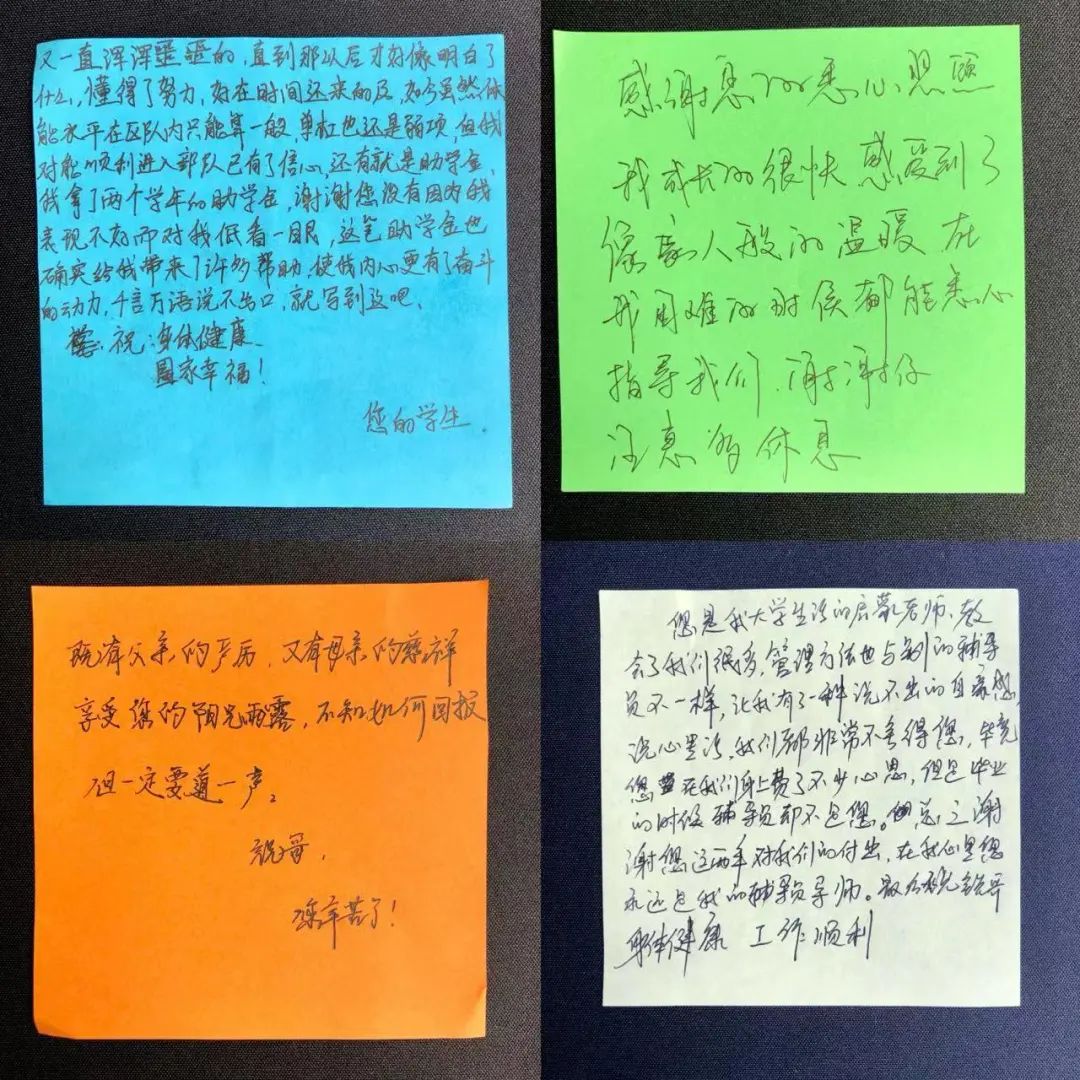 又一直浑浑噩噩的，直到那以后才好像明白了
什么，懂得了努力，好在时间还来的及，如今虽然体
能水平在区队内只能算一般，单杠也还是弱项，但我
对能顺利进入部队已有了信心，还有就是助学金，
我拿了两个学年的助学金，谢谢您没有因为我
表现不好而对我低看一眼，这笔助学金也
确实给我带来了许多帮助，使我内心更有了奋斗
的动力，千言万语说不出口，就写到这吧，
祝：身体健康
阖家幸福！
您的学生.
感谢您的悉心照顾
我成长的很快 感受到了
像家人般的温暖 在
我困难的时候都能悉心
指导我们.谢谢你
注意多休息
既有父亲的严厉，又有母亲的慈祥
享受您的阳光雨露，不知如何回报
但一定要道一声。
锐哥，
您辛苦了！
您是我大学生活的启蒙老师，教
会了我们很多，管理方法也与别的辅导
员不一样，让我有了一种说不出的自豪感，
说心里话，我们都非常不舍得您，毕竟
您在我们身上费了不少心思，但是毕业
的时候辅导员却不是您。总之谢
谢您这两年对我们的付出，在我心里您
永远是我的辅导员导师。最后祝锐哥
身体健康 工作顺利